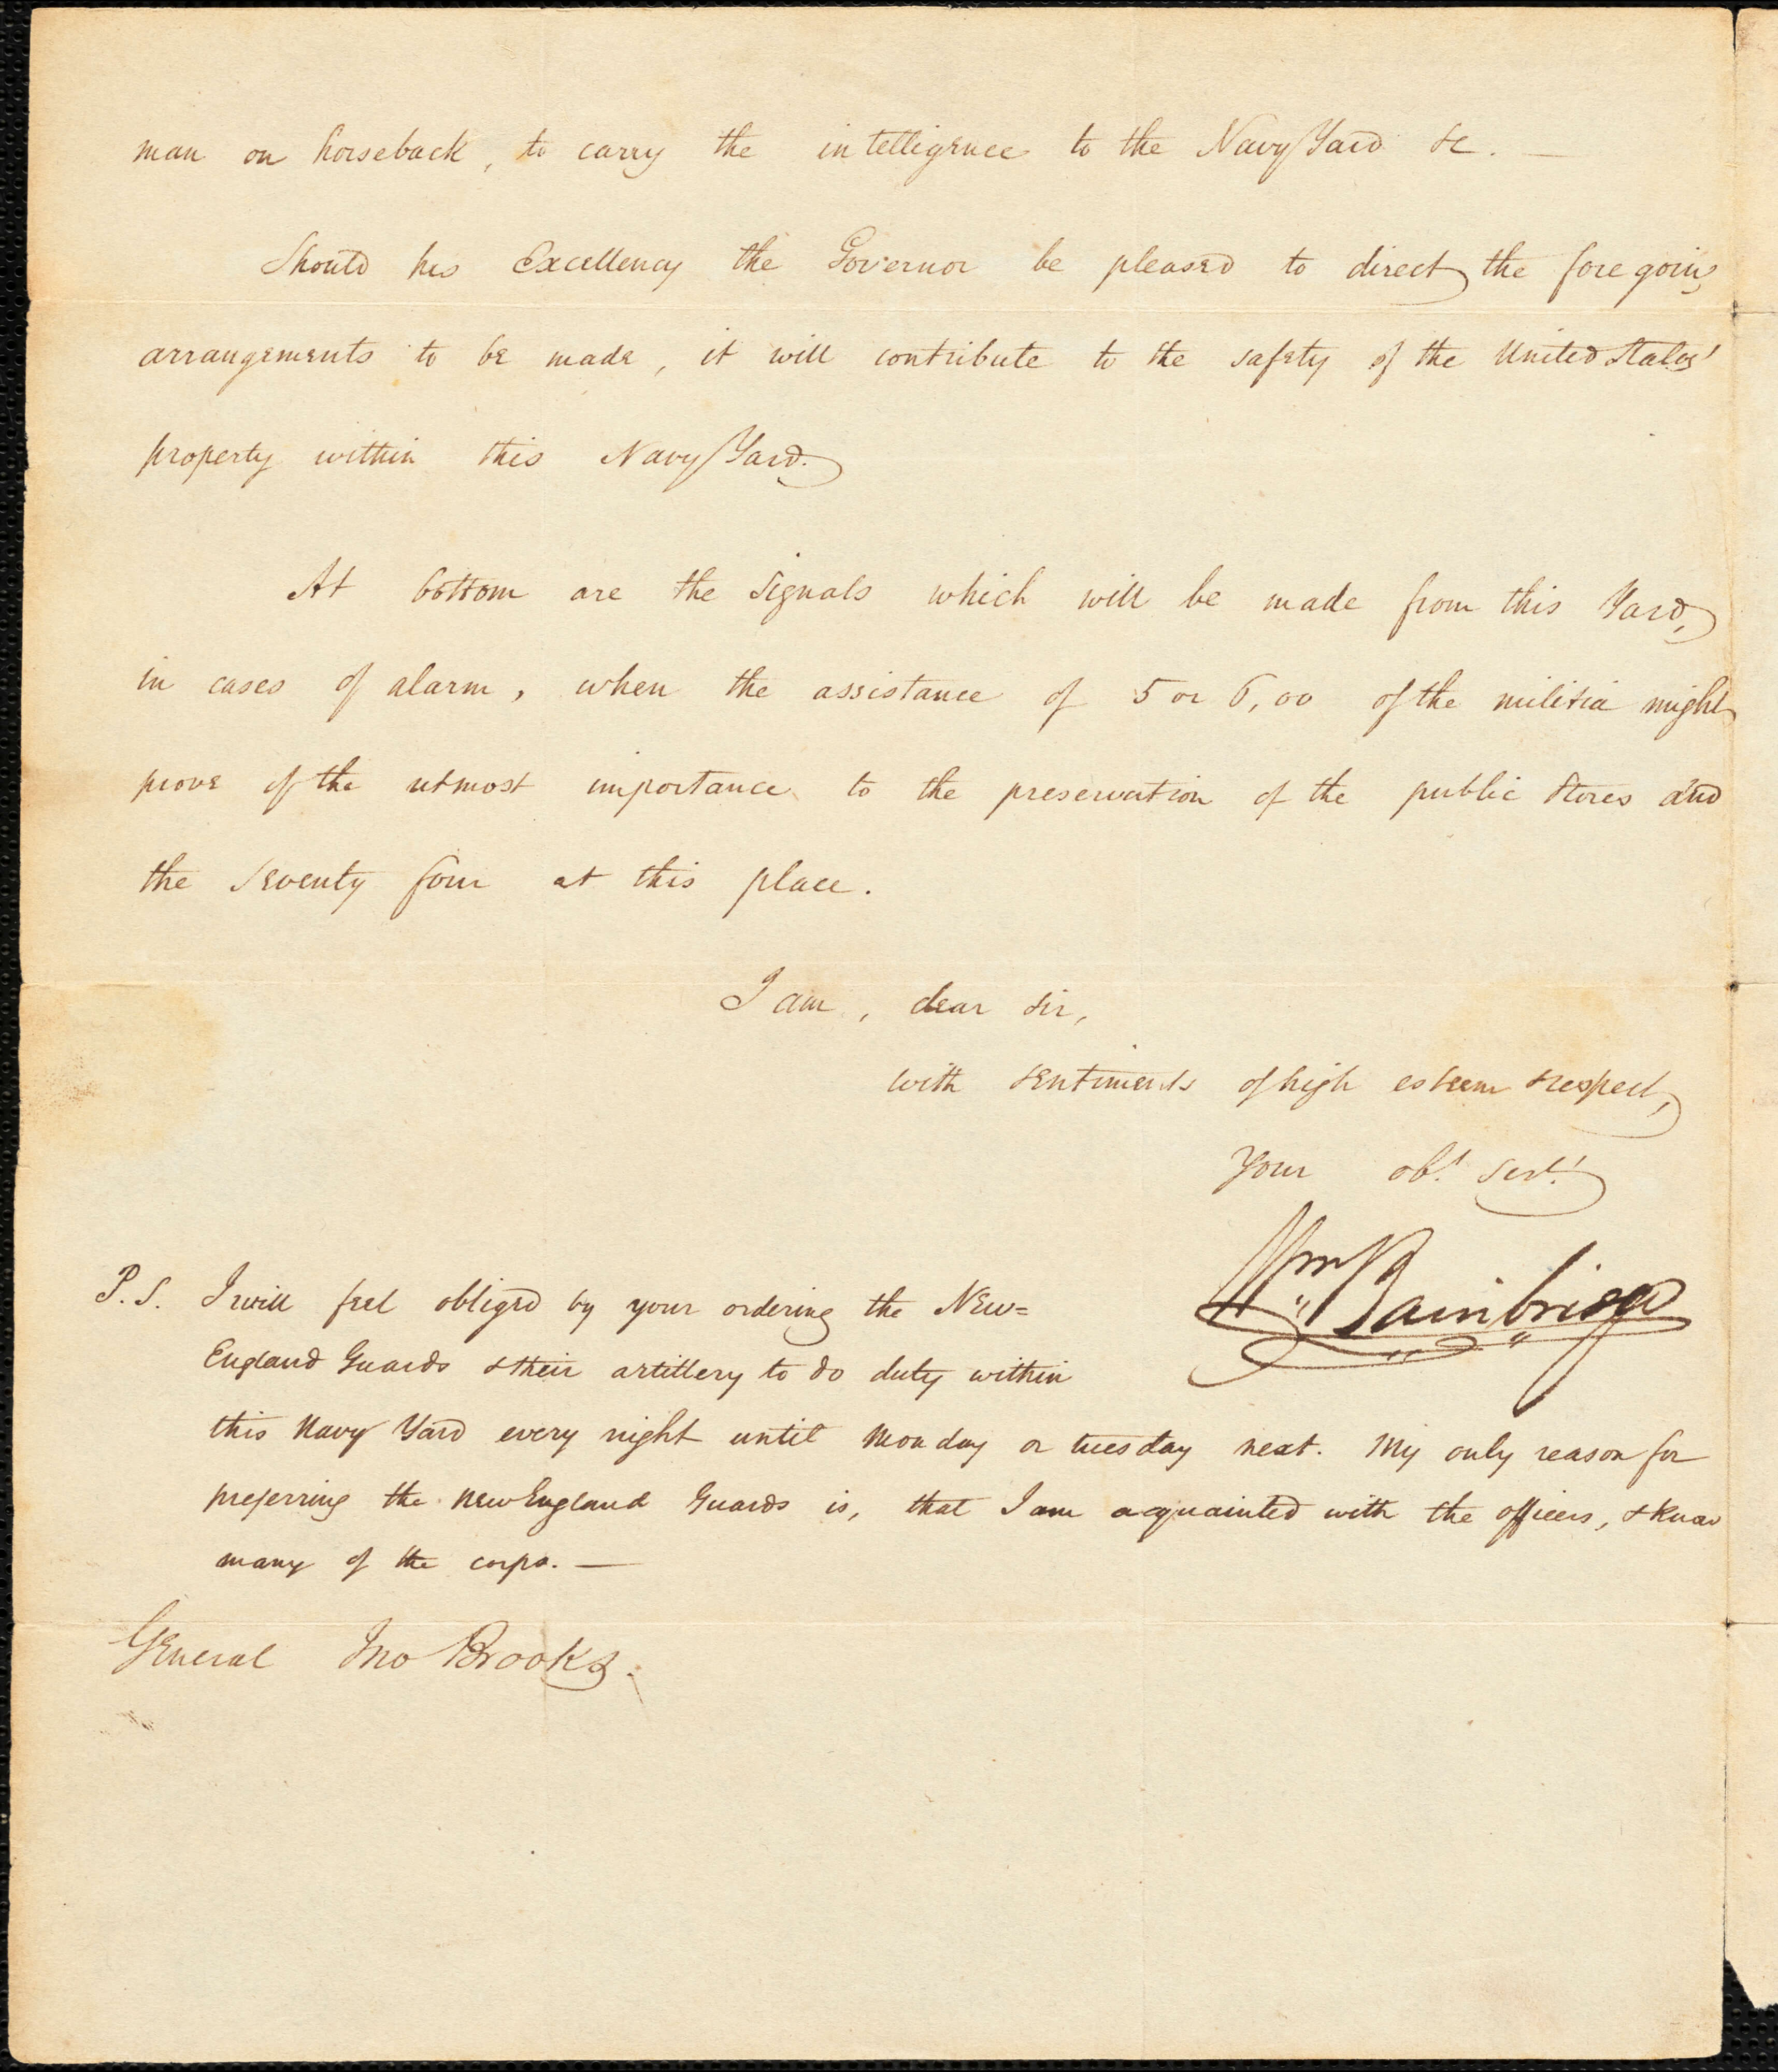 man on horseback, to carry the intelligence to the Navy Yard &c. —
Should his Excellency the Governor be pleased to direct the foregoing
arrangements to be made, it will contribute to the safety of the United States'
property within this Navy Yard.
At bottom are the signals which will be made from this Yard,
in cases of alarm, when the assistance of 5 or 6,00 of the militia might
prove of the utmost importance to the preservation of the public stores and
the seventy four at this place.
I am, dear sir,
with sentiments of high esteem & respect,
Your obt. servt.
Wm Bainbridge
P.S. I will feel obliged by your ordering the New=
England Guards & their artillery to do duty within
this Navy Yard every night until Monday or tuesday next. My only reason for
preferring the New England Guards is, that I am acquainted with the officers, & know
many of the corps. —
General Jno Brooks.